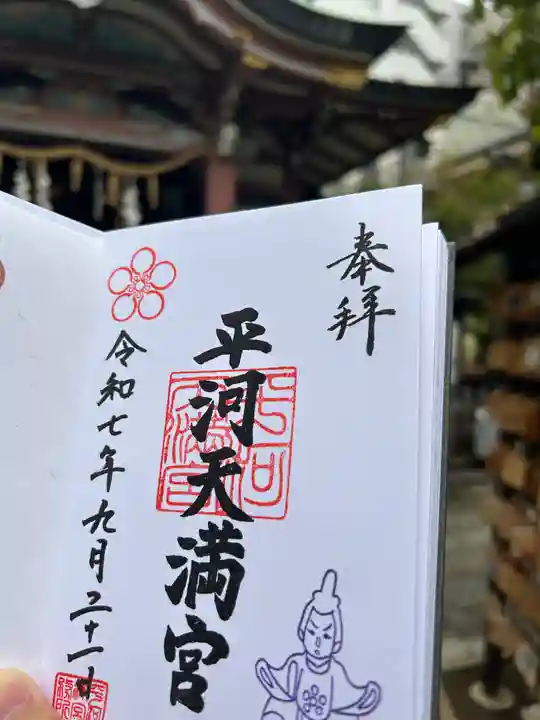 奉拝
平河天満宮
令和七年九月二十一日